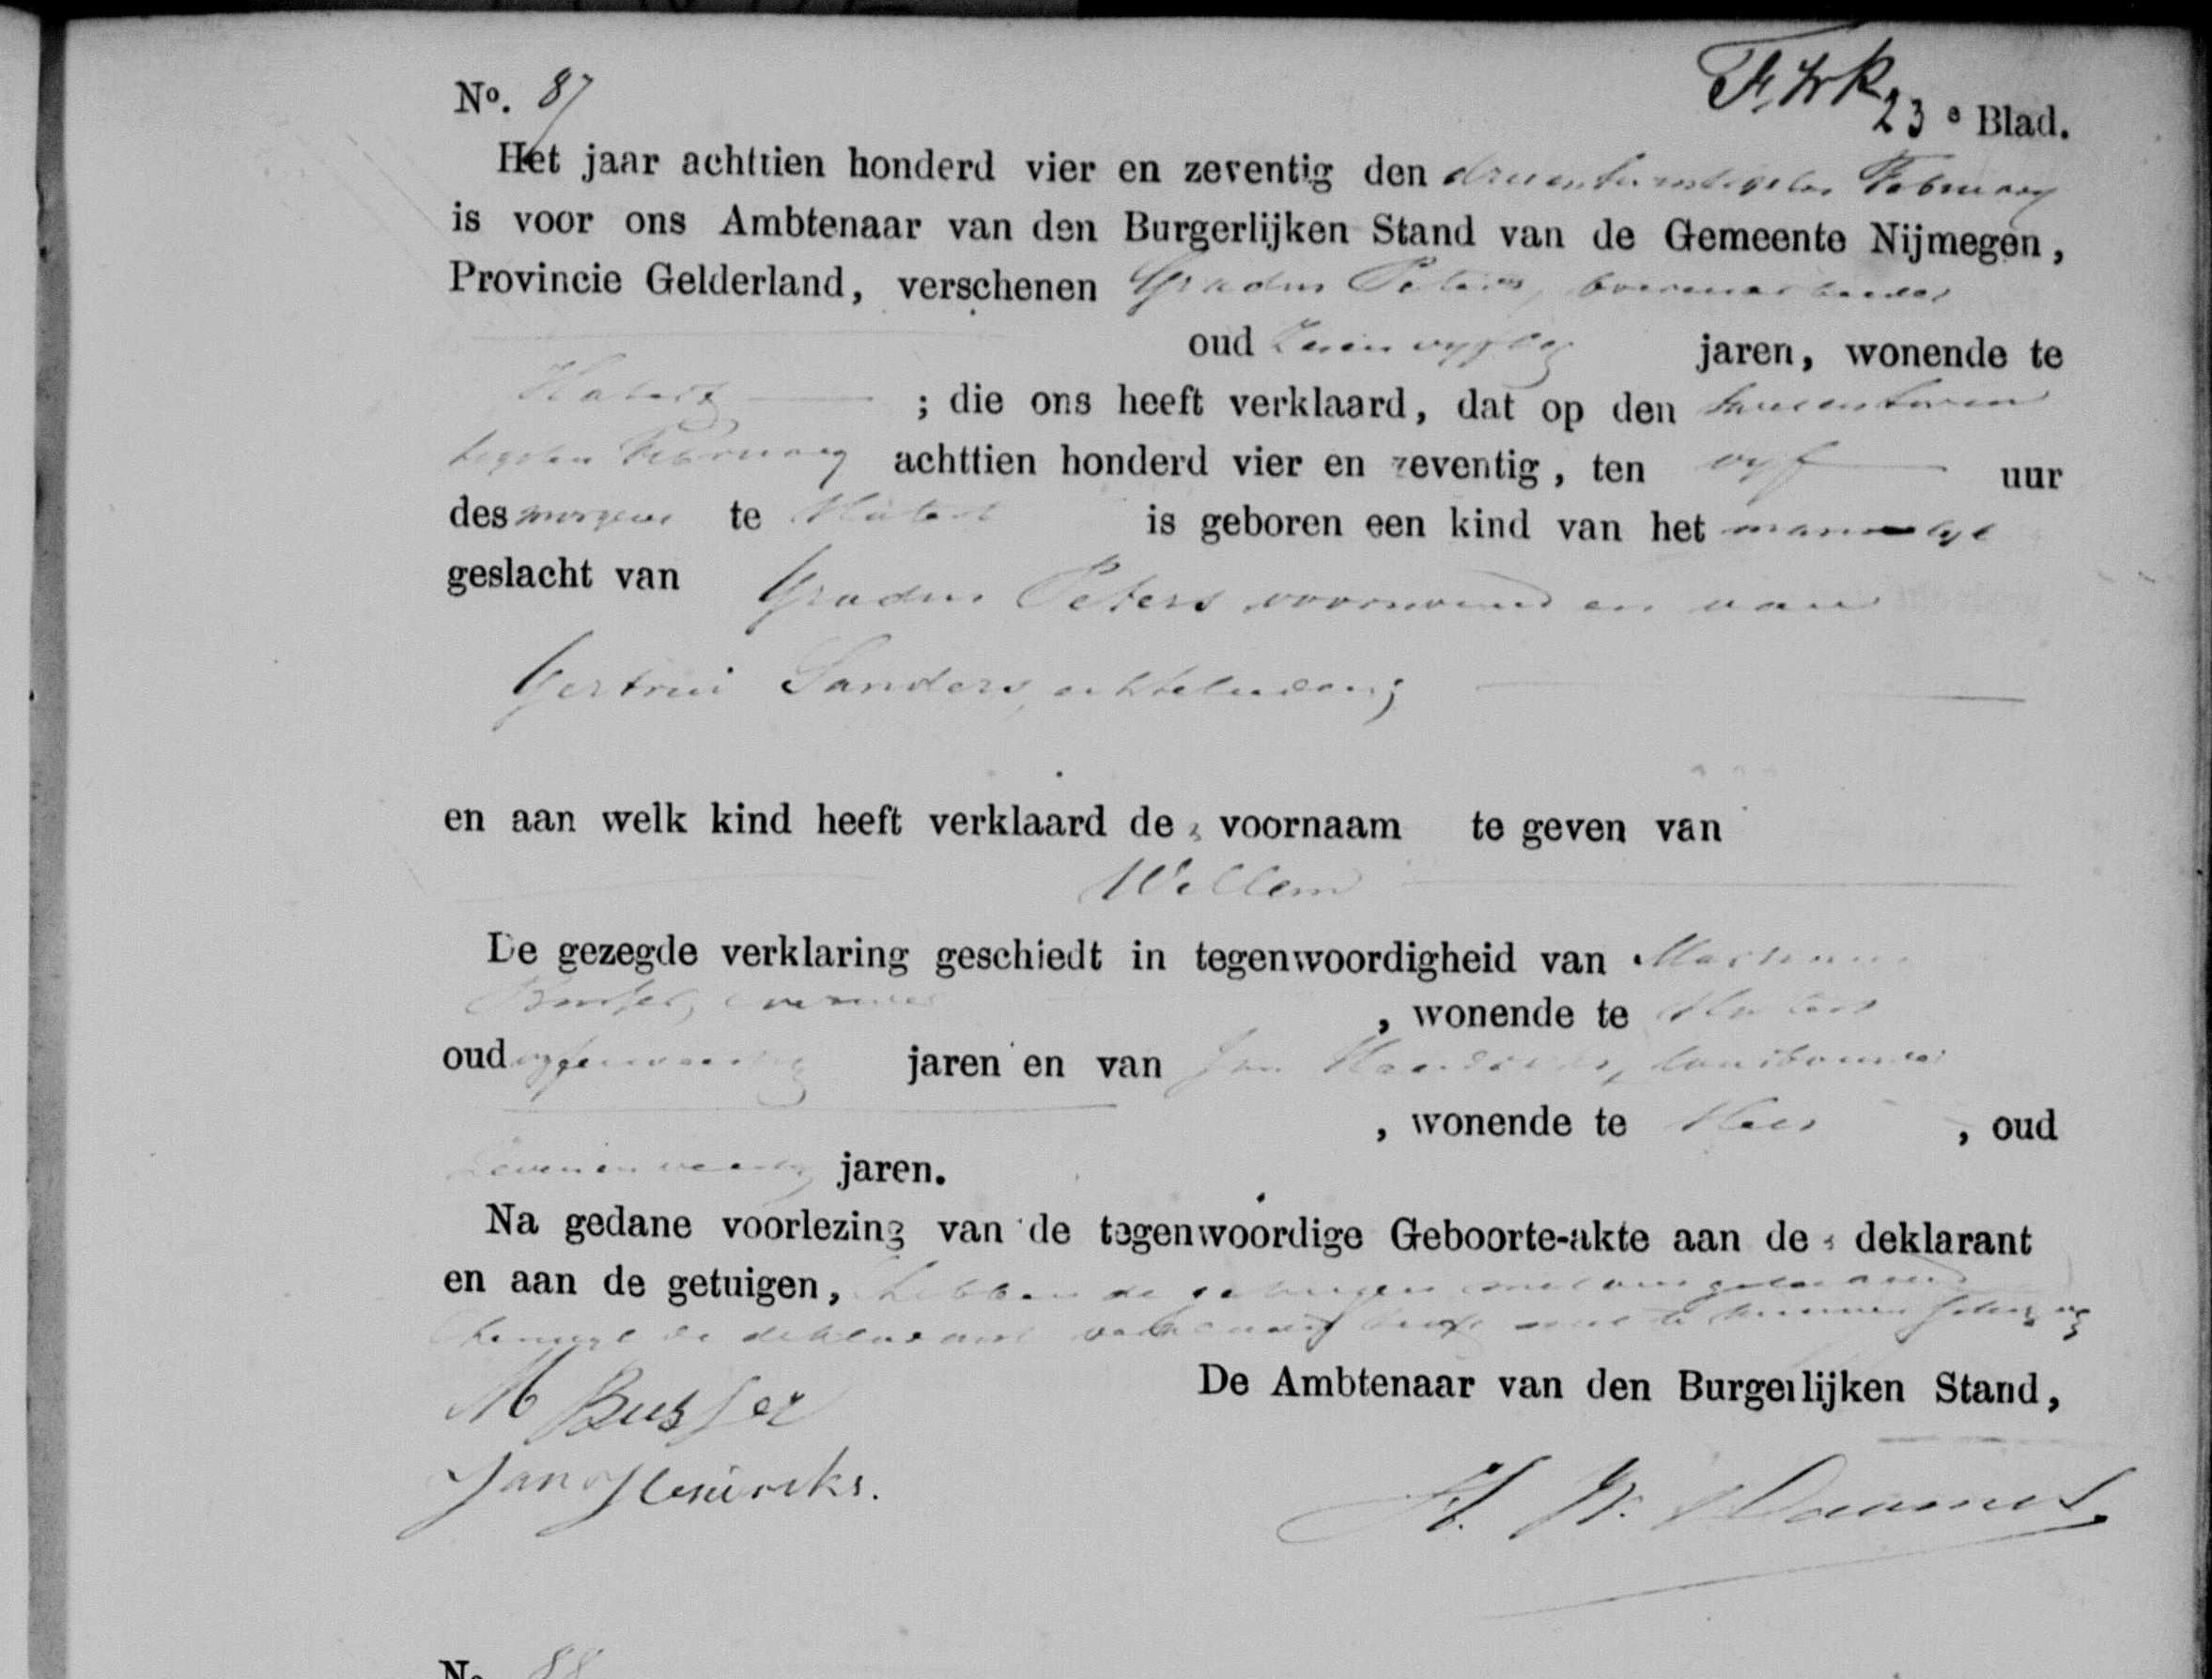 No. 87
23e Blad.
Het jaar achttien honderd vier en zeventig den drieentwintigsten February
is voor ons Ambtenaar van den Burgerlijken Stand van de Gemeente Nijmegen,
Provincie Gelderland, verschenen Gradus Peters, bouwarbeider
oud vyftig jaren, wonende te
Hatert ; die ons heeft verklaard, dat op den tweeentwin
tigsten February achttien honderd vier en zeventig, ten vyf uur
des morgens te Hatert is geboren een kind van het mannelyk
geslacht van Gradus Peters voornoemd en van
Gertrui Sanders, echtelieden;
en aan welk kind heeft verklaard de voornaam te geven van
Willem
De gezegde verklaring geschiedt in tegenwoordigheid van Marinus
Busser, wonende te Hatert
oud vyfenveertig jaren en van Jan Hendriks, landbouwer
, wonende te Hees , oud
zevenenveertig jaren.
Na gedane voorlezing van de tegenwoordige Geboorte-akte aan de deklarant
en aan de getuigen, hebben de getuigen met ons geteekend
terwyl de deklarant verklaard heeft niet te kunnen
M Busser
De Ambtenaar van den Burgerlijken Stand,
Jan Hendriks.
No. 88